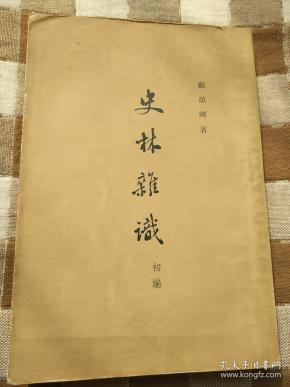 顧頡剛著
史林雜識
初編
孔夫子旧书网
kongfz.com